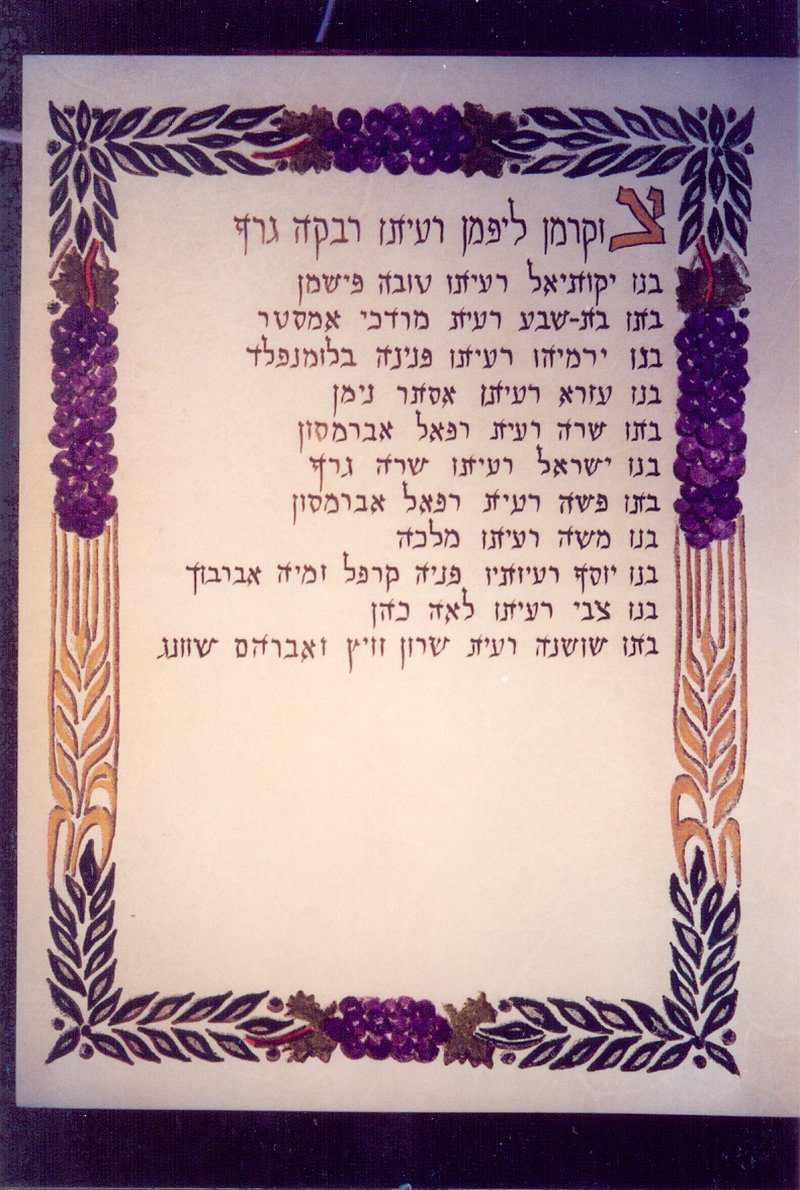 צוקרמן ליפמן רעיתו רבקה גרף
בנו יקותיאל רעיתו טובה פישמן
בתו בת-שבע רעית מרדכי אמסטר
בנו ירמיהו רעיתו פנינה בלומנפלד
בנו עזרא רעיתו אסתר נימן
בתו שרה רעית רפאל אברמסון
בנו ישראל רעיתו שרה גרף
בתו פשה רעית רפאל אברמסון
בנו משה רעיתו מלכה
בנו יוסף רעיותיו פניה קרפל ומיה אברבוך
בנו צבי רעיתו לאה כהן
בתו שושנה רעית שרון וויץ ואברהם